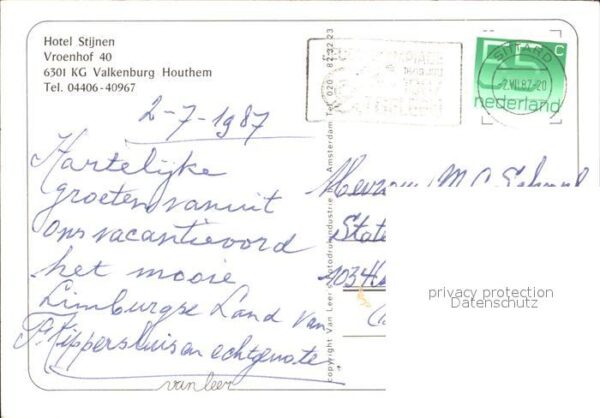 Hotel Stijnen
Vroenhof 40
6301 KG Valkenburg Houthem
Tel. 04406-40967
2-7-1987
Hartelijke
groeten vanuit
ons vacantieoord
het mooie
Limburgse Land van
P. Kippersluis en echtgenote
van leer
copyright Van Leer's Fotodrukindustrie Amsterdam Tel. 020 - 82 32 23
SITTARD
-2.VII.87-20
55 C
nederland
Mevrouw M.C.
State
1034
privacy protection
Datenschutz